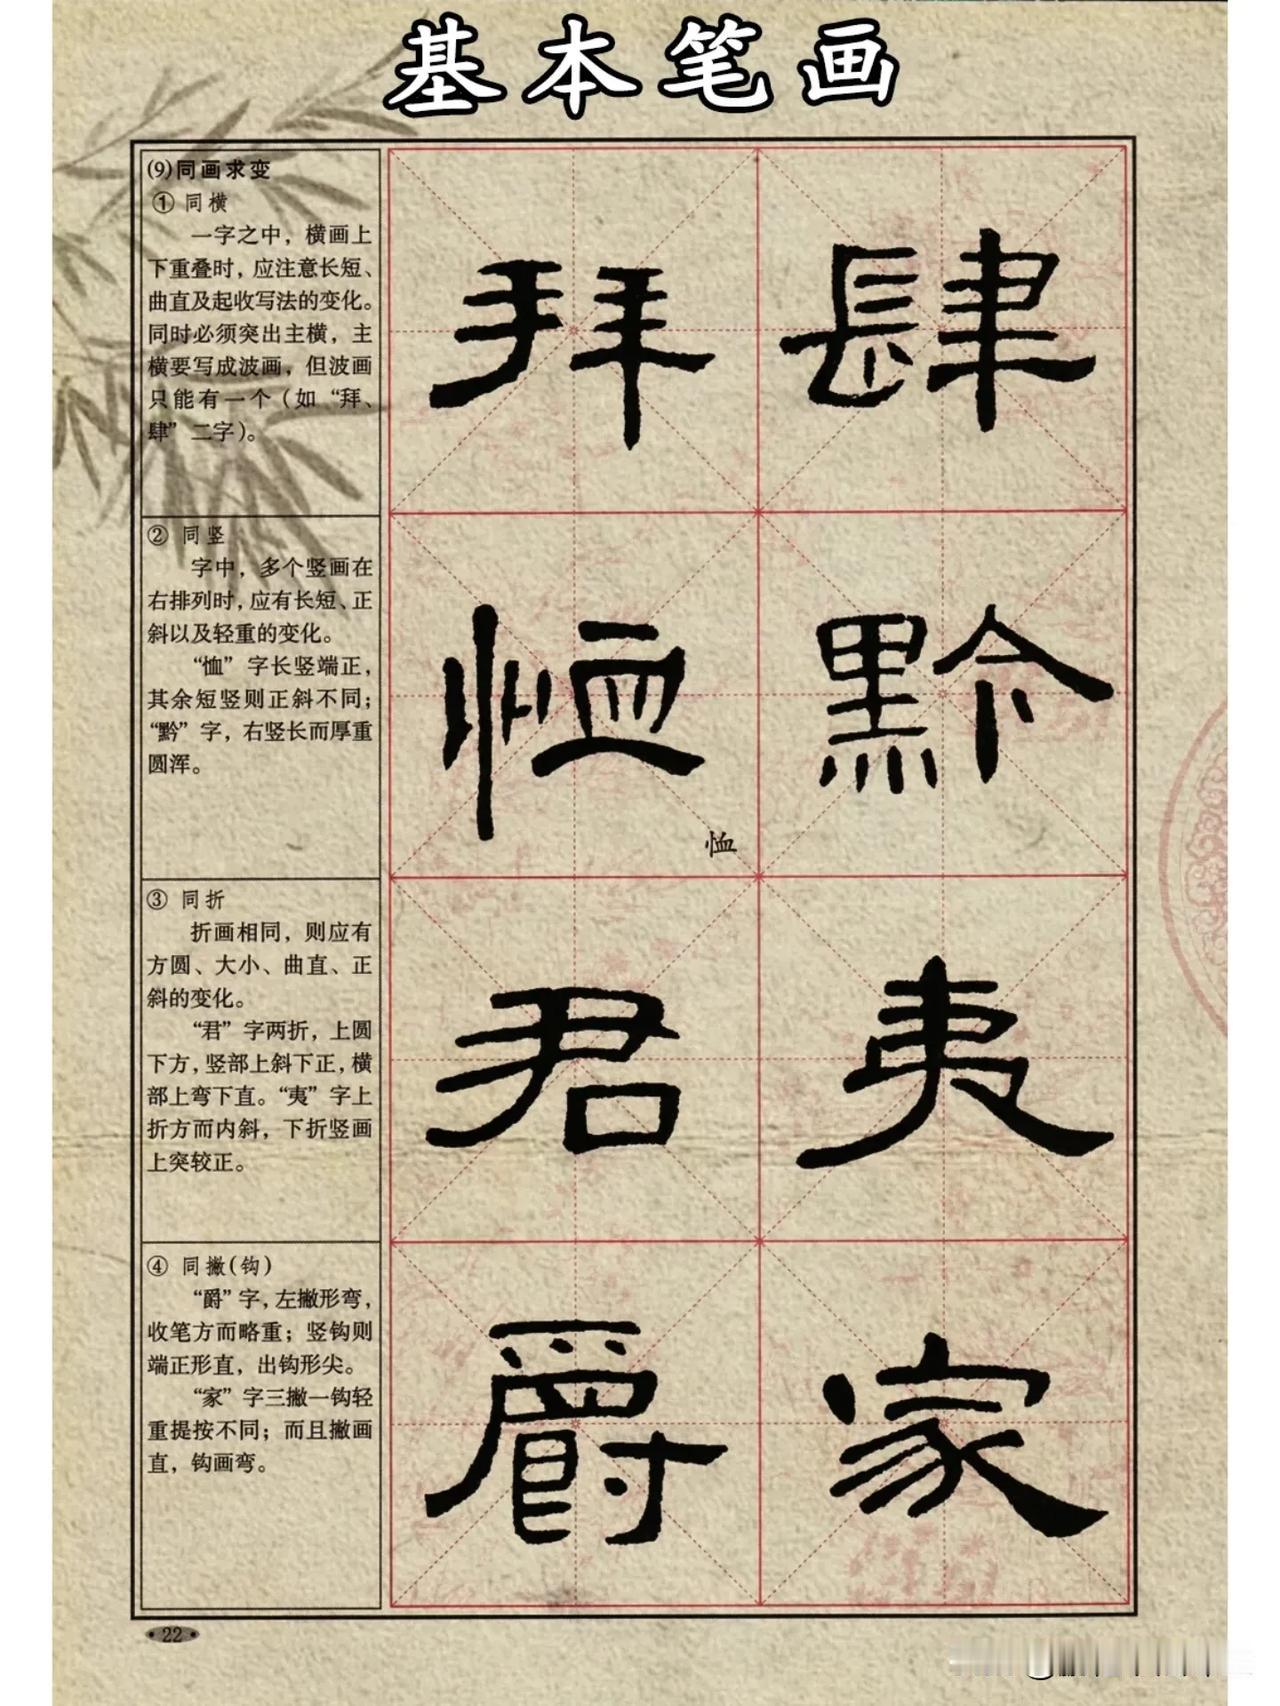 基本笔画
(9)同画求变
① 同横
一字之中，横画上
下重叠时，应注意长短、
曲直及起收写法的变化。
同时必须突出主横，主
横要写成波画，但波画
只能有一个（如“拜、
肆”二字）。
拜 肆
② 同竖
字中，多个竖画在
右排列时，应有长短、正
斜以及轻重的变化。
“恤”字长竖端正，
其余短竖则正斜不同；
“黔”字，右竖长而厚重
圆浑。
恤 黔
恤
③ 同折
折画相同，则应有
方圆、大小、曲直、正
斜的变化。
“君”字两折，上圆
下方，竖部上斜下正，横
部上弯下直。“夷”字上
折方而内斜，下折竖画
上突较正。
君 夷
④ 同撇(钩)
“爵”字，左撇形弯，
收笔方而略重；竖钩则
端正形直，出钩形尖。
“家”字三撇一钩轻
重提按不同；而且撇画
直，钩画弯。
爵 家
·22·